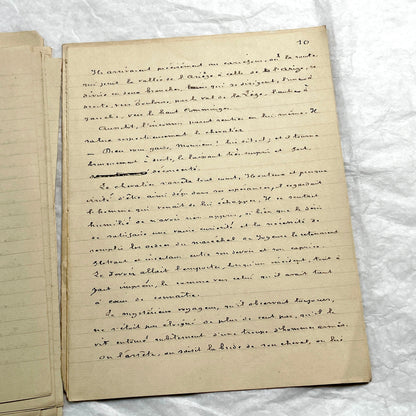 10
Ils arrivaient précisément au carrefour, où la route
qui joint la vallée de l'Ariège à celle de l'Arize, se
divise en deux branches, qui se dirigent, l'une à
droite, vers Toulouse, par le val de la Lèze, l'autre à
gauche, vers le haut Comminge.
Aussitôt, l'inconnu parut rentrer en lui même. Il
salua respectueusement le chevalier
— Dieu vous garde, Monsieur! lui dit-il; et il tourna
brusquement à droite, le laissant très surpris et fort
décontenancé.
Le chevalier s'arrêta tout court, Honteux et presque
irrité d'être ainsi déçu dans son espérance, et regardant
l'homme qui venait de lui échapper. Il se sentait
humilié de n'avoir rien appris, si bien que le désir
de satisfaire une vaine curiosité et la nécessité de
remplir les ordres du maréchal de Joyeuse le retinrent
flottant et incertain entre son devoir et son caprice.
Le devoir allait l'emporter, lorsqu'un incident, tout à
fait imprévu, le ramena vers celui qu'il avait tant
à cœur de connaître.
Le mystérieux voyageur, qu'il observait toujours,
ne s'était pas éloigné de plus de cent pas, qu'il le
vit entouré subitement d'une troupe d'hommes armés.
On l'arrête, on saisit la bride de son cheval, on lui